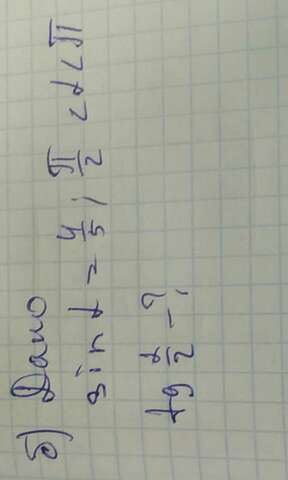 б) Дано
sin t = 4/5; π/2 < t < π
tg t/2 - ?